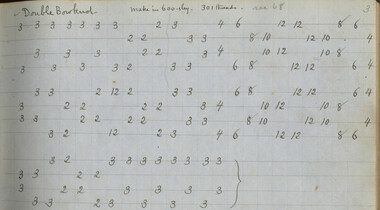 Double Bowknot. make in 600 sley. 300 threads. see 68 3
3 3 3 3 3 3 3 2 3 4 6 12 12 8 6
2 2 3 3 8 10 12 10 4
3 3 3 2 2 3 4 10 12 10 8
3 3 3 3 2 3 3 6 8 12 12 6 4
3 3 2 12 2 3 3 6 8 12 12 6 4
3 2 2 2 2 3 4 10 12 10 8
3 3 2 2 2 2 3 3 8 10 12 10 4
3 2 12 2 3 4 6 12 12 8 6
3 2 3 3 3 3 3 3 3 3
3 3 2 2
3 2 2 3 3 3 3
3 3 2 3 3 3 3